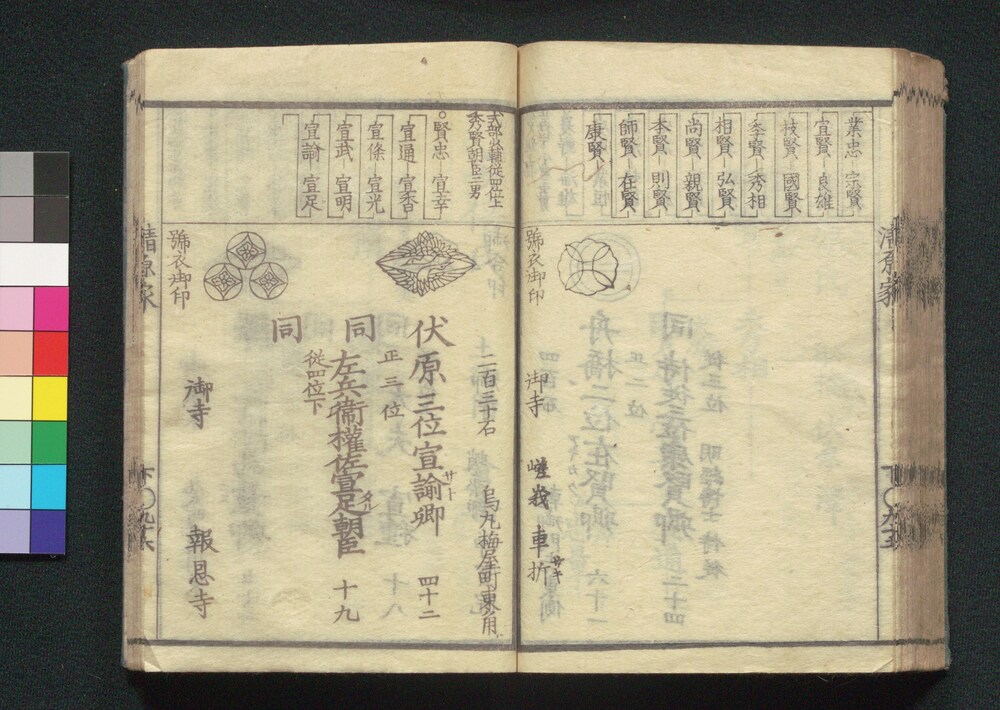 業忠 宗賢
宣賢 良雄
枝賢 國賢
秀賢 秀相
相賢 弘賢
尚賢 親賢
本賢 則賢
師賢 在賢
康賢
號衣御印
御寺 嵯峩 車折
清原家
式部少輔從四位上
秀賢朝臣二男
○賢忠 宣幸
宣通 宣香
宣條 宣光
宣武 宣明
宣諭 宣足
二百三十石 烏丸梅屋町東角
伏原三位宣諭卿 四十二
サト
正三位
同 左兵衞權佐宣足朝臣 十九
タル
從四位下
同
號衣御印
御寺 報恩寺
清原家